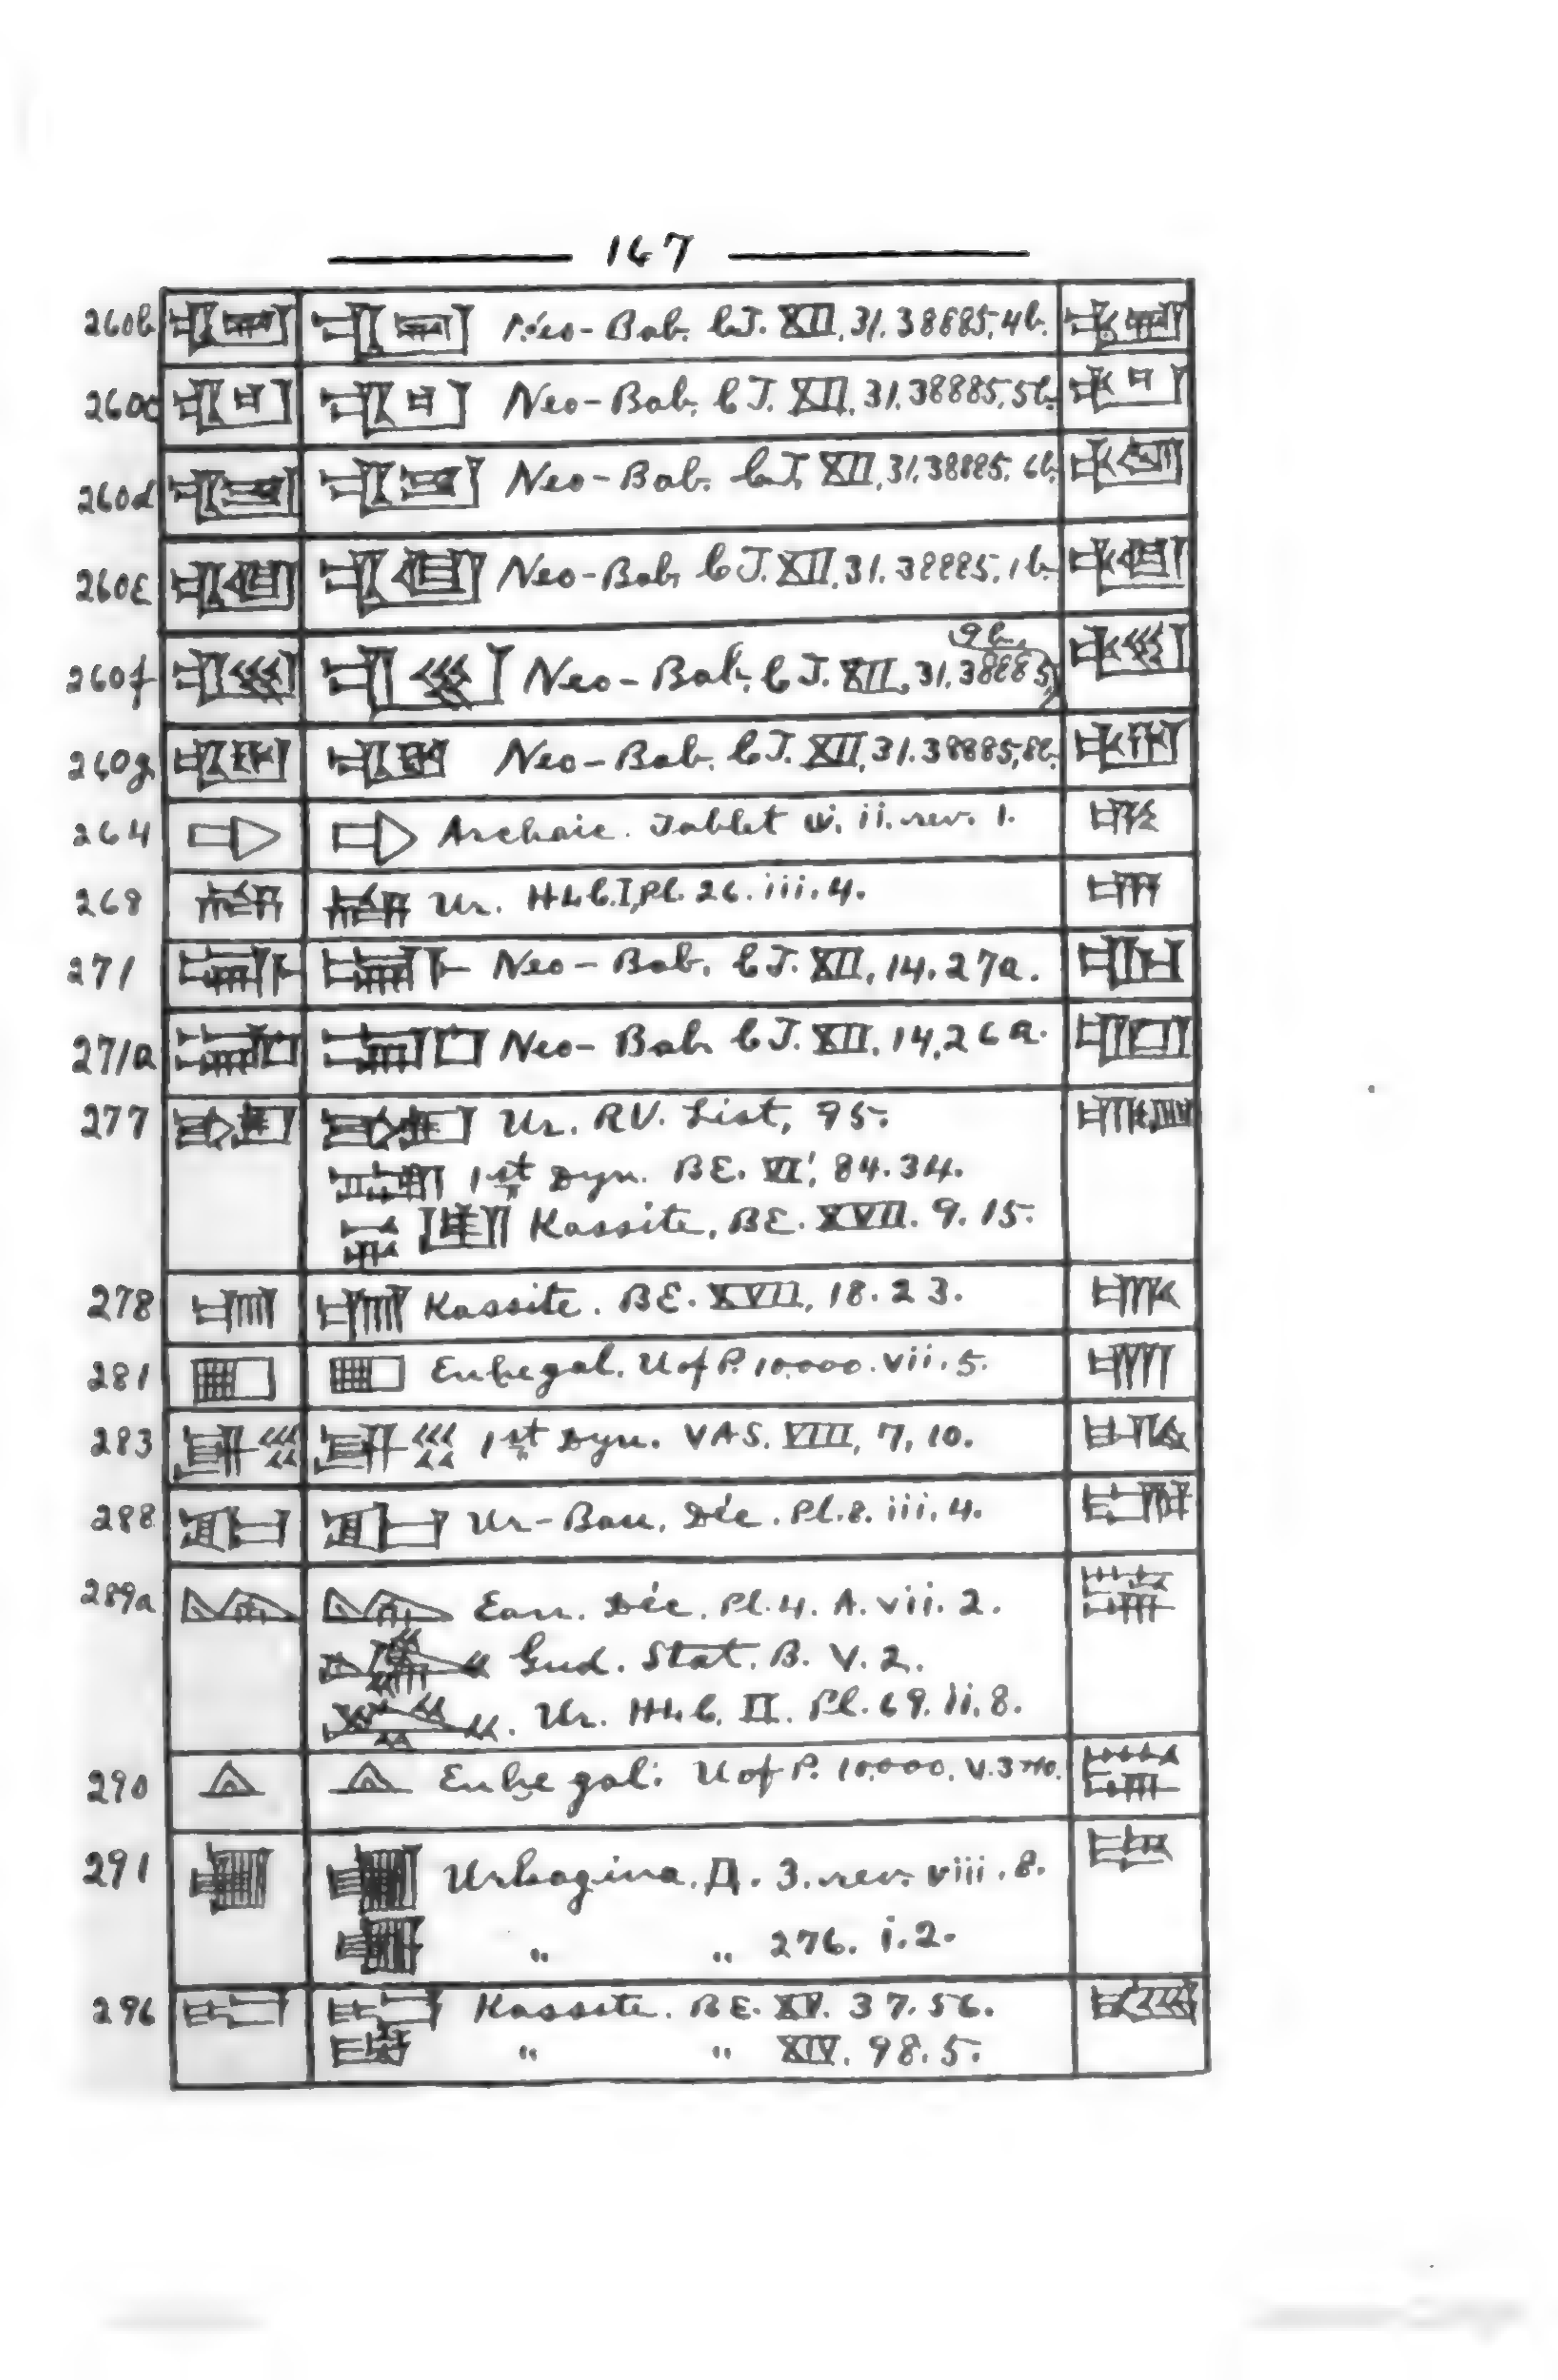 167
260b Neo-Bab. C.T. XII, 31. 38885, 4b.
260c Neo-Bab. C.T. XII, 31. 38885, 5b.
260d Neo-Bab. C.T. XII, 31. 38885, 6b.
260e Neo-Bab. C.T. XII, 31. 38885, 1b.
9b.
260f Neo-Bab. C.T. XII, 31. 38885,
260g Neo-Bab. C.T. XII, 31. 38885, 8b.
264 Archaic. Tablet ii. rev. 1.
268 Ur. HLC. I, Pl. 26. iii. 4.
271 Neo-Bab. C.T. XII, 14. 27a.
271a Neo-Bab. C.T. XII, 14, 26a.
277 Ur. RV. List, 95.
1st Dyn. BE. VI', 84. 34.
Kassite, BE. XVII. 9. 15.
278 Kassite. BE. XVII, 18. 23.
281 Enḫegal. U of P. 10.000. vii. 5.
283 1st Dyn. VAS. VIII, 7, 10.
288 Ur-Bau, Déc. Pl. 8. iii. 4.
289a Ean. Déc. Pl. 4. A. vii. 2.
Gud. Stat. B. V. 2.
Ur. HLC. II. Pl. 69. ii. 8.
290 Enḫegal. U of P. 10.000. V. 3
291 Urkagina. Д. 3. rev. viii. 8.
" " 276. i. 2.
296 Kassite. BE. XV. 37. 56.
" " XIV. 98. 5.